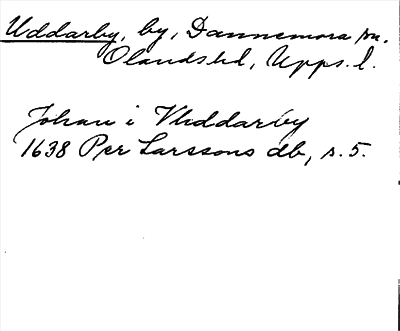 Uddarby, by, Dannemora sn.
Olands hd, Upps. l.
Johan i Vhddarby
1638 Per Larssons db, s. 5.